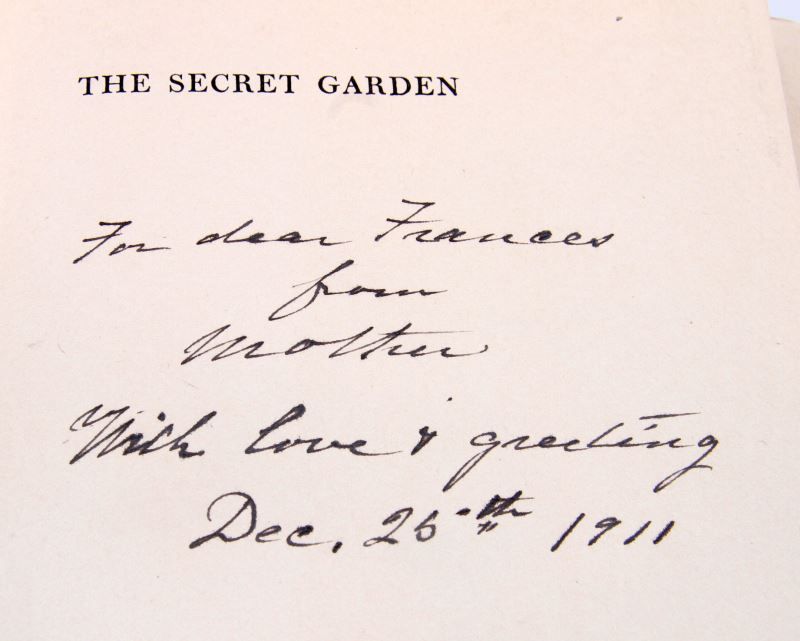 THE SECRET GARDEN
For dear Frances
from
Mother
With love & greeting
Dec. 25th 1911